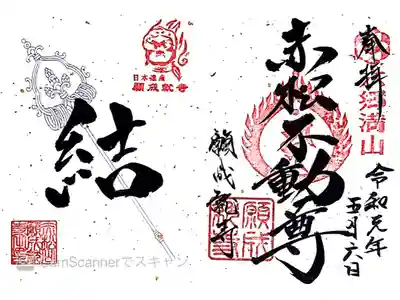 奉拝
六郷満山
令和元年
五月六日
赤松不動尊
願成就寺
日本遺産
願成就寺
結
CamScannerでスキャン